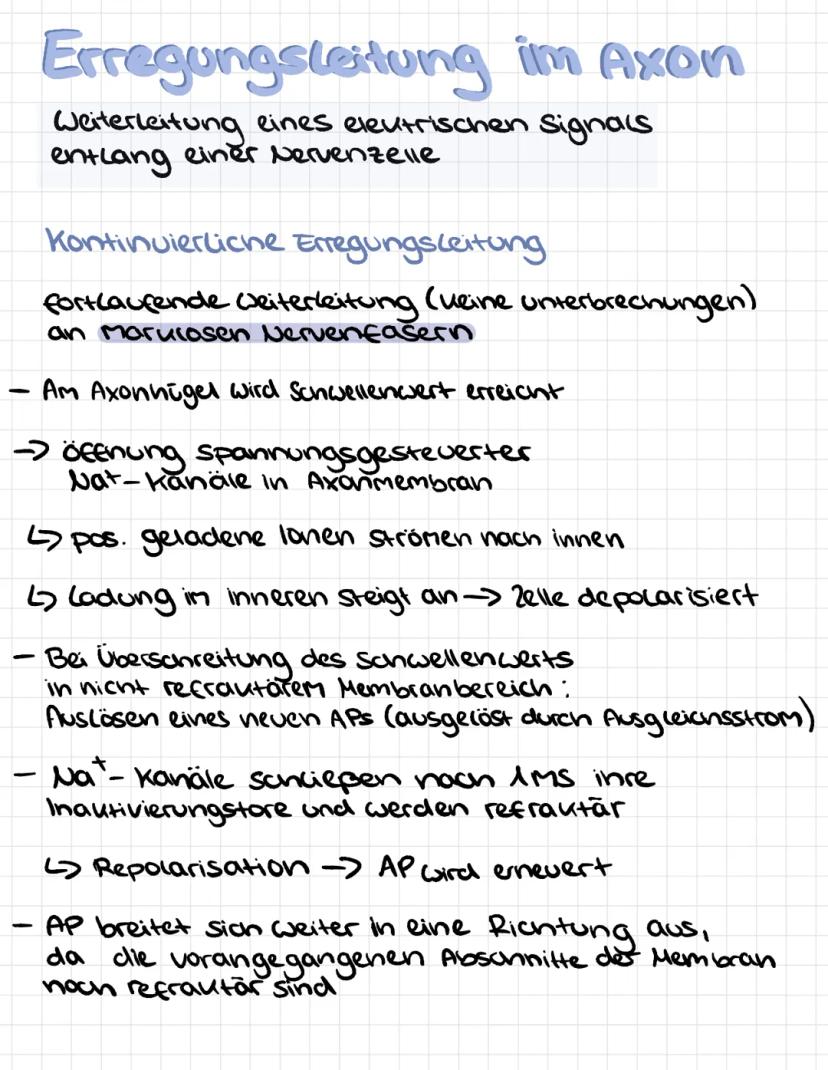 Erregungsleitung im Axon
Weiterleitung eines elektrischen Signals
entlang einer Nervenzelle
Kontinuierliche Erregungsleitung
fortlaufende Weiterleitung (keine Unterbrechungen)
an marklosen Nervenfasern
- Am Axonhügel wird Schwellenwert erreicht
→ Öffnung spannungsgesteuerter
Na⁺-Kanäle in Axonmembran
↳ pos. geladene Ionen strömen nach innen
↳ Ladung im inneren steigt an → Zelle depolarisiert
- Bei Überschreitung des Schwellenwerts
in nicht refraktärem Membranbereich :
Auslösen eines neuen APs (ausgelöst durch Ausgleichsstrom)
- Na⁺- Kanäle schließen nach 1ms ihre
Inaktivierungstore und werden refraktär
↳ Repolarisation → AP wird erneuert
- AP breitet sich weiter in eine Richtung aus,
da die vorangegangenen Abschnitte der Membran
noch refraktär sind